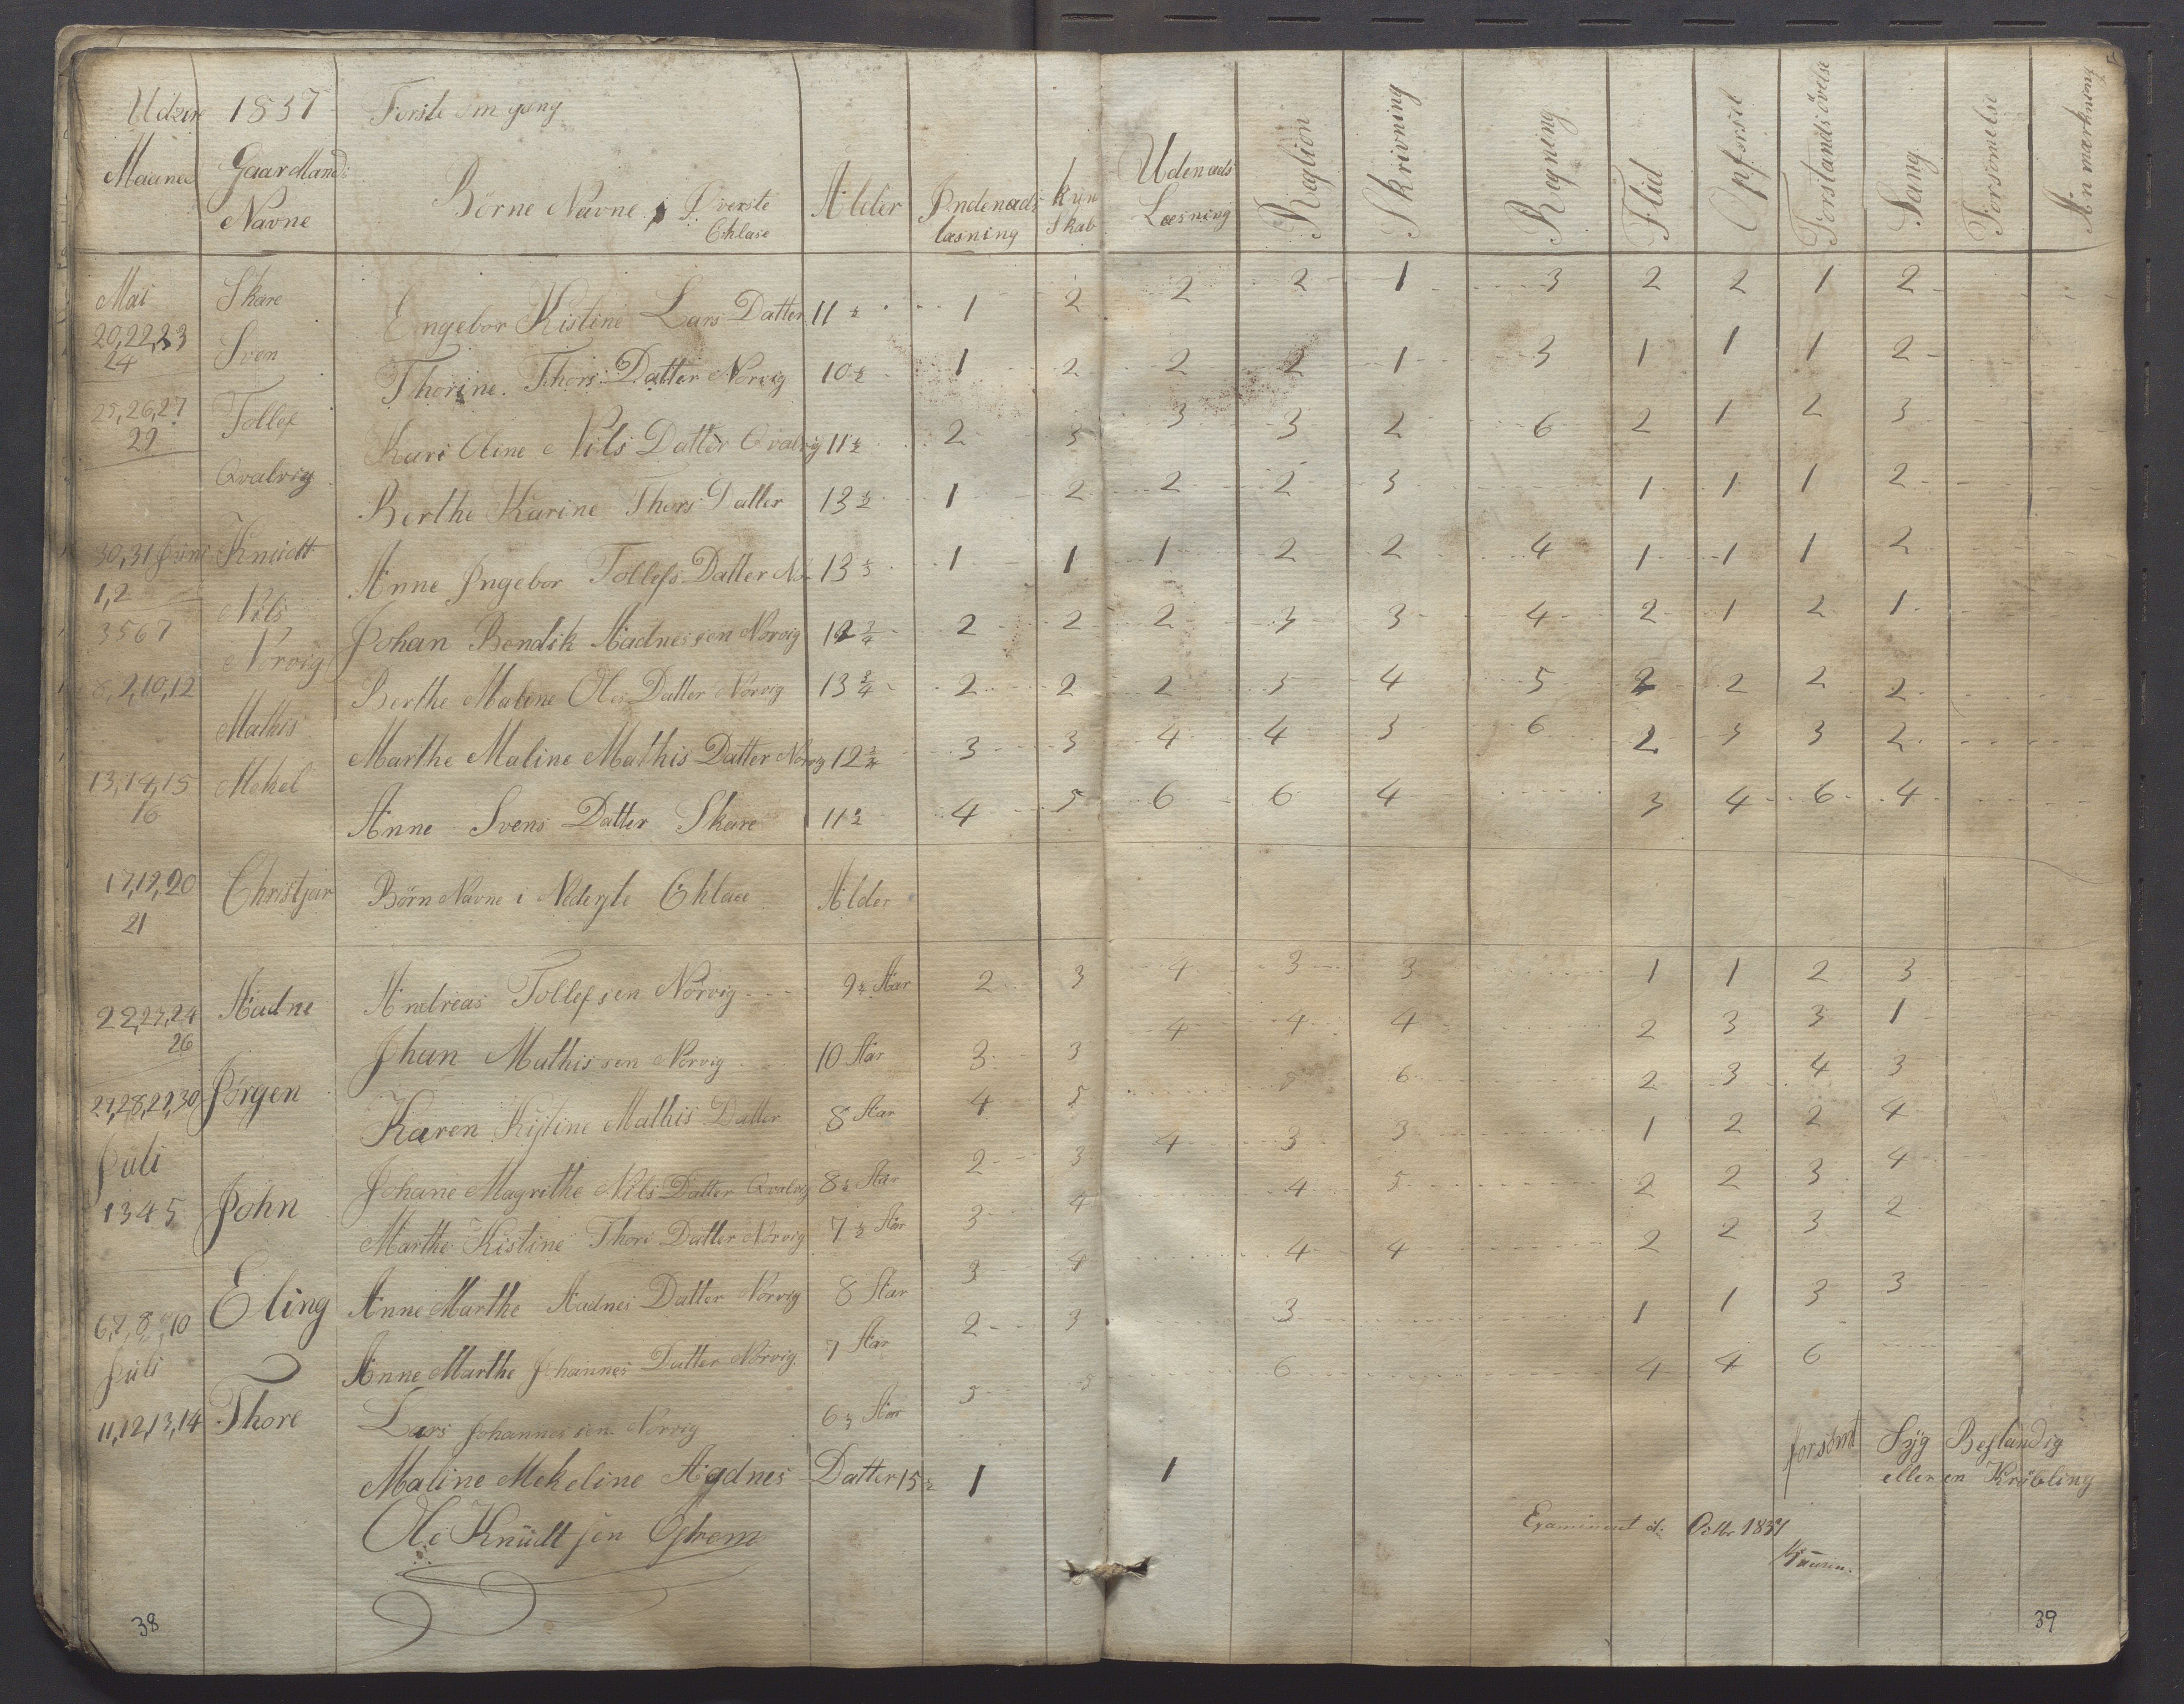 1837 Forste Om gang
Maaned Gaardmands Navne Børne Navne i Øverste Chlase Alder Indenads læsning Kun Skab Udenads Læsning Reglion Skrivning Regning Flid Opførsel Forstandsøvelse Sang Forsømelse Anmærkning
Mai Skare
Engebor Kistine Lars Datter 11 ½ 1 2 2 2 1 3 2 2 1 2
20,22,23
24 Sven
Thorine Thors Datter Norvig 10 ½ 1 2 2 2 1 3 1 1 1 2
25,26,27
29 Tollef
Kari Oline Nils Datter Qvalvig 11 ½ 2 3 3 3 2 6 2 1 2 3
Qvalvig
Berthe Karine Thors Datter 13 ½ 1 2 2 2 3 1 1 1 2
30,31 Juni Knudt
1,2
Anne Ingebor Tollefs Datter Nor 13 1 1 1 2 2 4 1 1 1 2
Nils
3567
Johan Bendik Aadnessen Norvig 12 2 2 2 3 3 4 2 1 2 1
Norvig
8,9,10,12
Berthe Maline Ols Datter Norvig 13 ¾ 2 2 2 3 4 5 2 2 2 2
Mathis
Marthe Maline Mathis Datter Norvig 12 3 3 4 4 3 6 2 3 3 2
13,14,15
16 Mekel
Anne Svens Datter Skare 11 ½ 4 5 6 6 4 3 4 6 4
17,19,20
21 Christjan Børn Navne i Nederste Chlase Alder
22,23,24
26 Aadne Andreas Tollefsen Norvig 9 ½ Aar 2 3 4 3 3 1 1 2 3
Jhan Mathissen Norvig 10 Aar 3 3 4 4 4 2 3 3 1
27,28,29,30 Jørgen
Karen Kistine Mathis Datter 8 Aar 4 5 5 6 2 3 4 3
Juli
Johane Magrethe Nils Datter Qvalvig 8 ½ Aar 2 3 4 3 3 1 2 2 4
1345 John
Marthe Kistine Thors Datter Norvig 7 ½ Aar 3 4 4 5 2 2 3 4
Anne Marthe Aadnes Datter Norvig 8 Aar 3 4 4 4 2 2 3 2
6,7,8,9,10 Eling
Juli
Anne Marthe Johannes Datter Norvig 7 Aar 2 3 3 1 1 3 3
11,12,13,14 Thore
Lars Johannessen Norvig 6 ½ Aar 5 5 6 4 4 6
Maline Mekeline Aadnes Datter 15 ½ 1 1 forsømt Syg Bestandig
eller en Krøbling
Ole Knudtsen Østrem
Examineret d: Octbr 1837
38
39